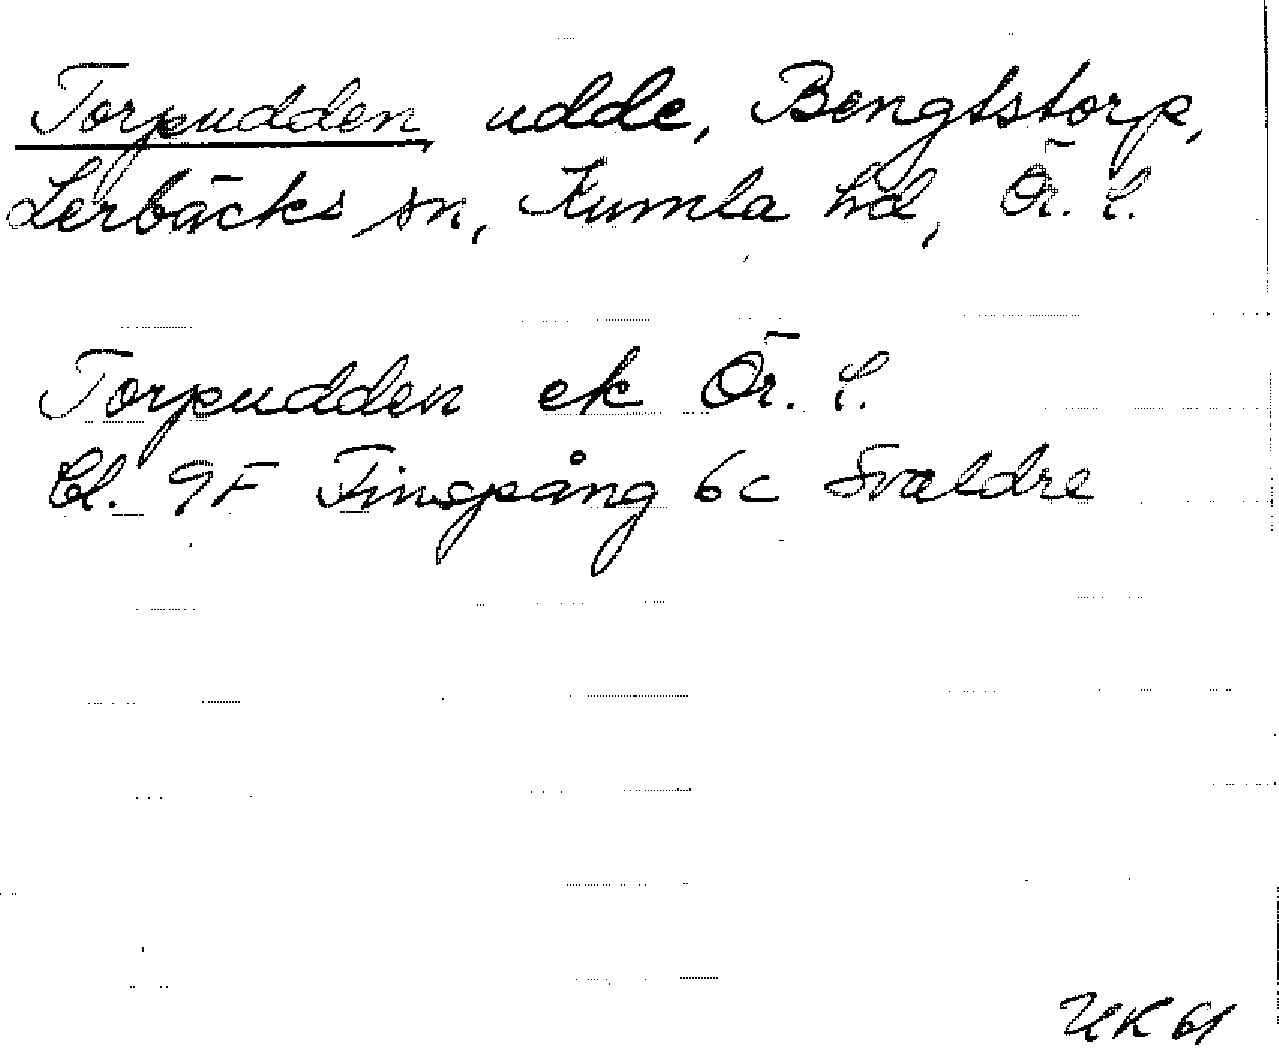 Torpudden, udde, Bengtstorp,
Lerbäcks sn, Kumla hd, Ör. l.
Torpudden ek Ör. l.
Bl. 9F Finspång 6c Svaldre
UK 61